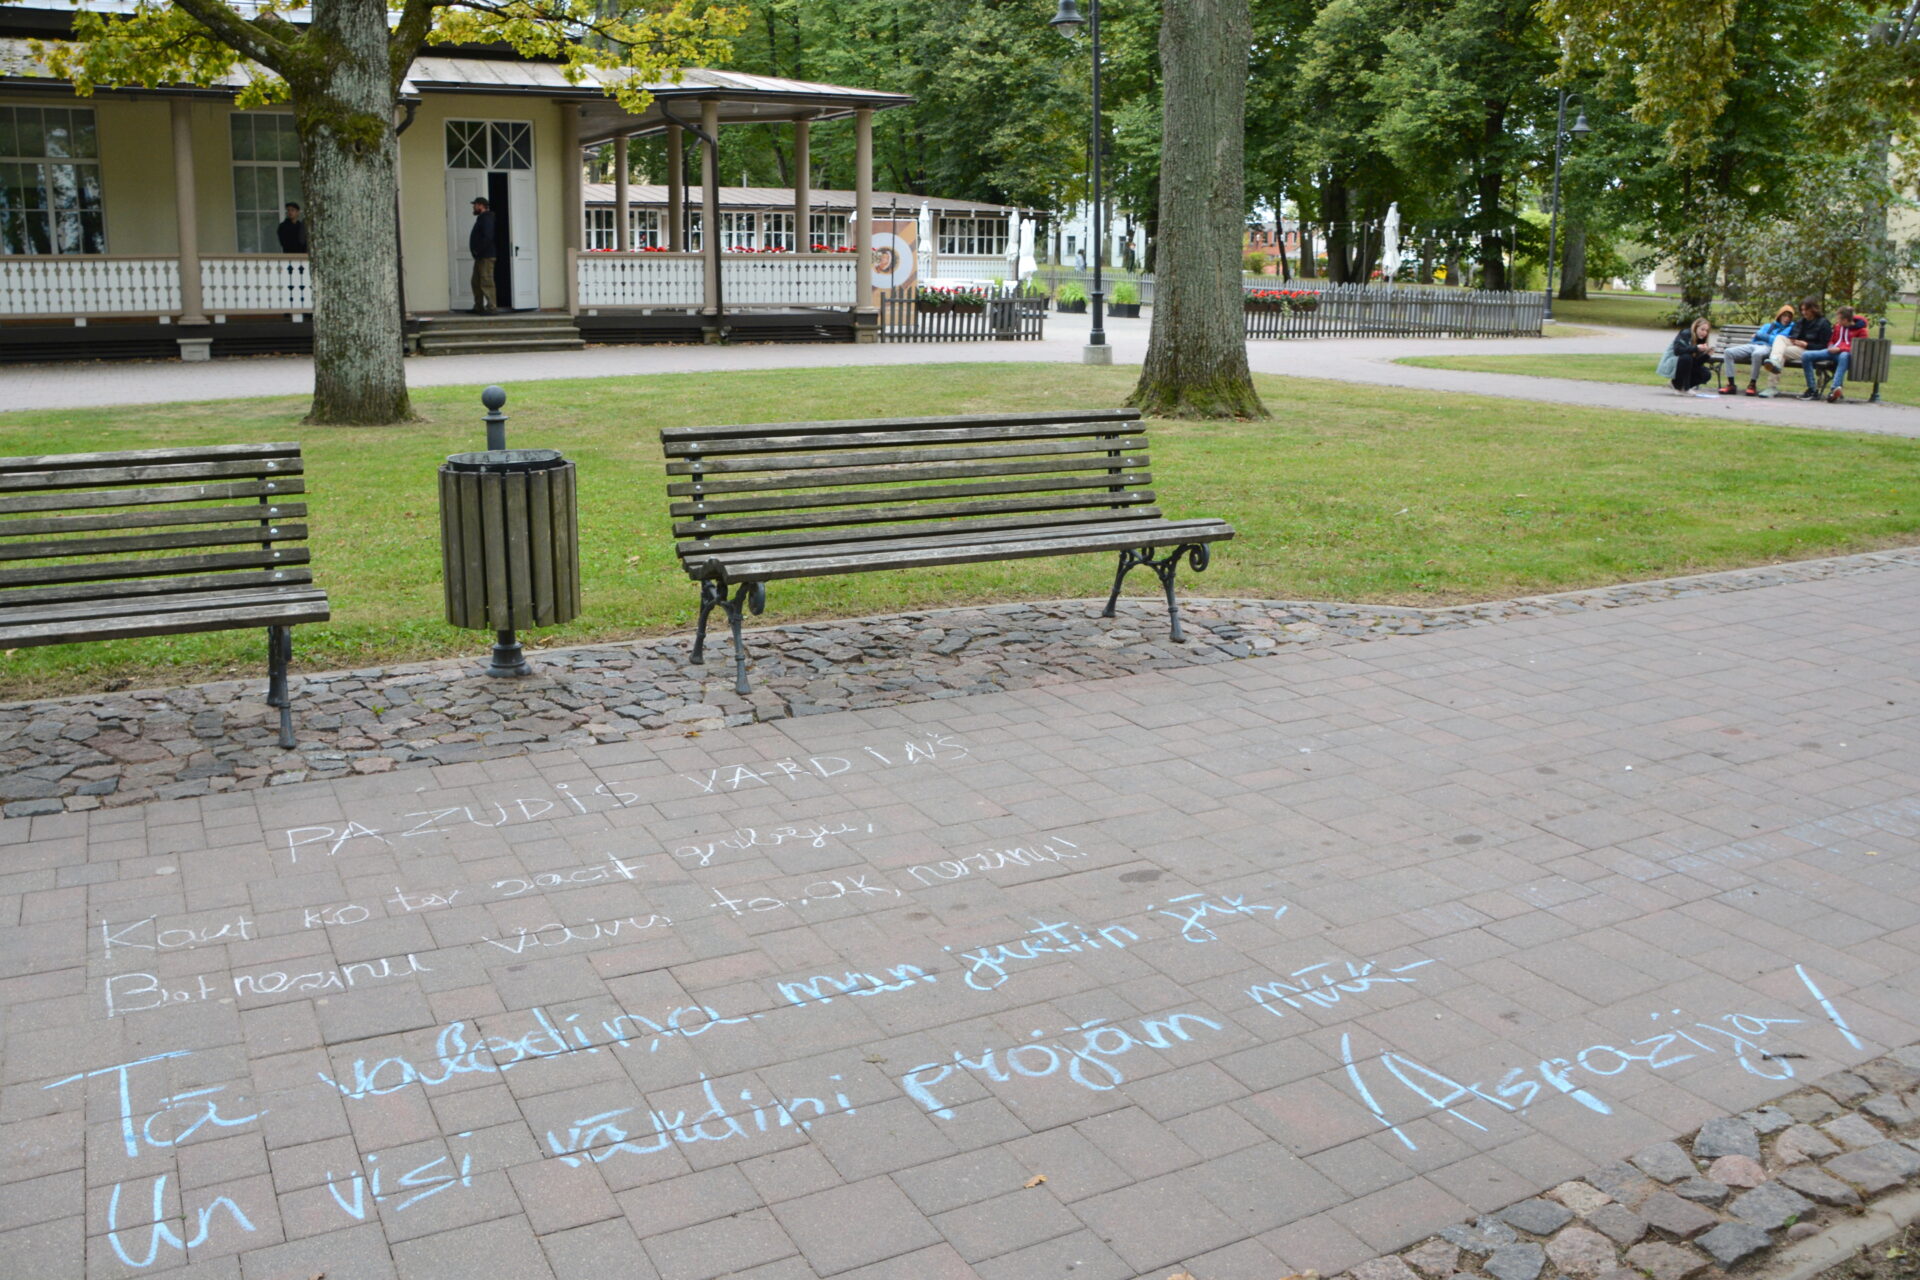 PAZUDIS VĀRDIŅŠ
Kaut ko tev sacīt gribēju,
Bet nezinu vairs to..ak, nezinu!
Tā valodiņa man jūtīn jūk,
Un visi vārdiņi projām mūk-
/Aspazija/